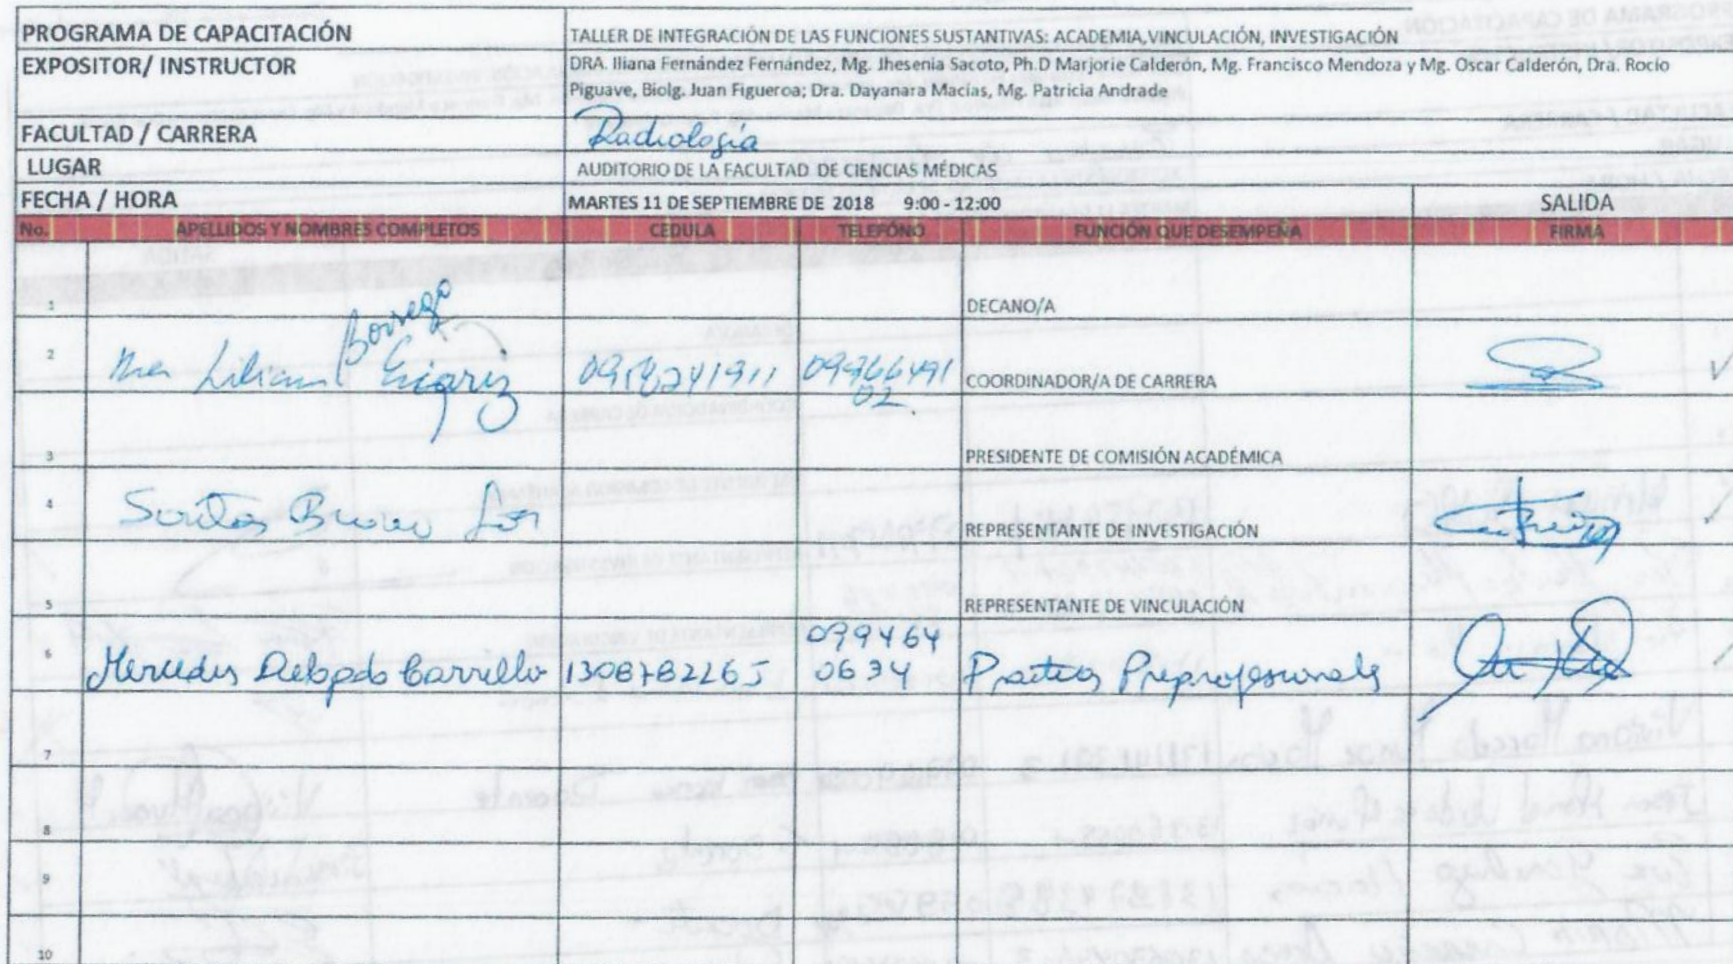 PROGRAMA DE CAPACITACIÓN TALLER DE INTEGRACIÓN DE LAS FUNCIONES SUSTANTIVAS: ACADEMIA, VINCULACIÓN, INVESTIGACIÓN
EXPOSITOR/ INSTRUCTOR DRA. Iliana Fernández Fernández, Mg. Jhesenia Sacoto, Ph.D Marjorie Calderón, Mg. Francisco Mendoza y Mg. Oscar Calderón, Dra. Rocío
Piguave, Biolg. Juan Figueroa; Dra. Dayanara Macías, Mg. Patricia Andrade
FACULTAD / CARRERA Radiología
LUGAR AUDITORIO DE LA FACULTAD DE CIENCIAS MÉDICAS
FECHA / HORA MARTES 11 DE SEPTIEMBRE DE 2018 9:00 - 12:00 SALIDA
No. APELLIDOS Y NOMBRES COMPLETOS CEDULA TELEFÓNO FUNCIÓN QUE DESEMPEÑA FIRMA
1 DECANO/A
Borrego
2 Liliana 09366491 COORDINADOR/A DE CARRERA
02
3 PRESIDENTE DE COMISIÓN ACADÉMICA
4 REPRESENTANTE DE INVESTIGACIÓN
5 REPRESENTANTE DE VINCULACIÓN
099464
6 Mercedes Delgado Carrillo 1308782265 0634
7
8
9
10